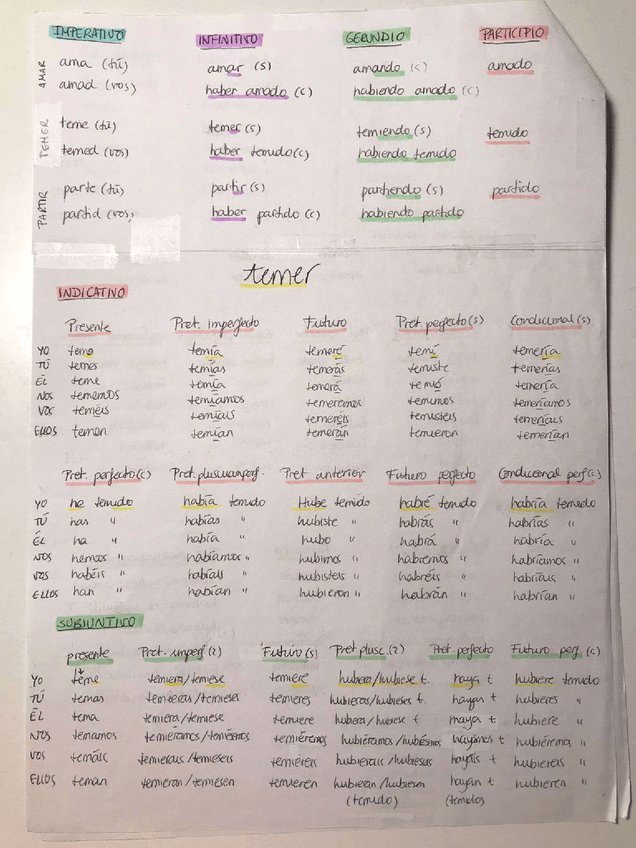 IMPERATIVO INFINITIVO GERUNDIO PARTICIPIO
AMAR
ama (tú) amar (s) amando (s) amado
amad (vos) haber amado (c) habiendo amado (c)
TEMER
teme (tú) temer (s) temiendo (s) temido
temed (vos) haber temido (c) habiendo temido
PARTIR
parte (tú) partir (s) partiendo (s) partido
partid (vos) haber partido (c) habiendo partido
temer
INDICATIVO
Presente Pret. imperfecto Futuro Pret. perfecto (s) Condicional (s)
YO temo temía temeré temí temería
TÚ temes temías temerás temiste temerías
ÉL teme temía temerá temió temería
NOS tememos temíamos temeremos temimos temeríamos
VOS teméis temíais temeréis temisteis temeríais
ELLOS temen temían temerán temieron temerían
Pret. perfecto (c) Pret. pluscuamperf. Pret anterior Futuro perfecto Condicional perf (c)
YO he temido había temido Hube temido habré temido habría temido
TÚ has " habías " hubiste " habrás " habrías "
ÉL ha " había " hubo " habrá " habría "
NOS hemos " habíamos " hubimos " habremos " habríamos "
VOS habéis " habíais " hubisteis " habréis " habríais "
ELLOS han " habían " hubieron " habrán " habrían "
SUBIUNTIVO
presente Pret. imperf (2) Futuro (s) Pret plusc. (2) Pret perfecto Futuro perf (c)
YO teme temiera/temiese temiere hubiera/hubiese t. haya t hubiere temido
TÚ temas temieras/temieses temieres hubieras/hubieses t. hayas t hubieres "
ÉL tema temiera/temiese temiere hubiera/hubiese t haya t hubiere "
NOS temamos temiéramos/temiésemos temiéremos hubiéramos/hubiésemos hayamos t hubiéremos "
VOS temáis temierais/temieseis temiereis hubierais/hubieseis hayáis t hubiereis "
ELLOS teman temieran/temiesen temieren hubieran/hubiesen hayan t hubieren "
(temido) (temido)